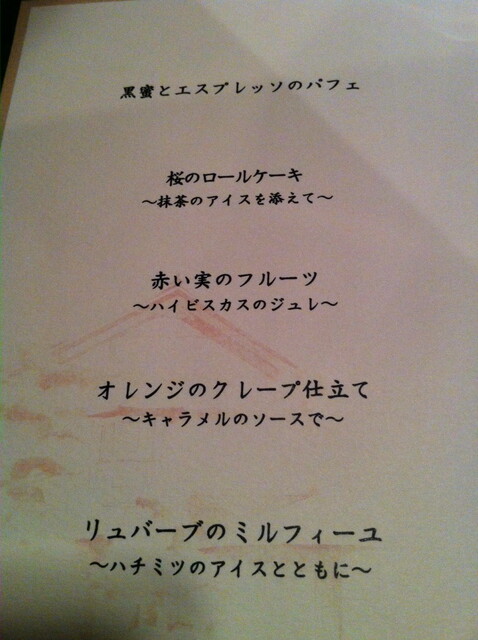 黒蜜とエスプレッソのパフェ
桜のロールケーキ
～抹茶のアイスを添えて～
赤い実のフルーツ
～ハイビスカスのジュレ～
オレンジのクレープ仕立て
～キャラメルのソースで～
リュバーブのミルフィーユ
～ハチミツのアイスとともに～